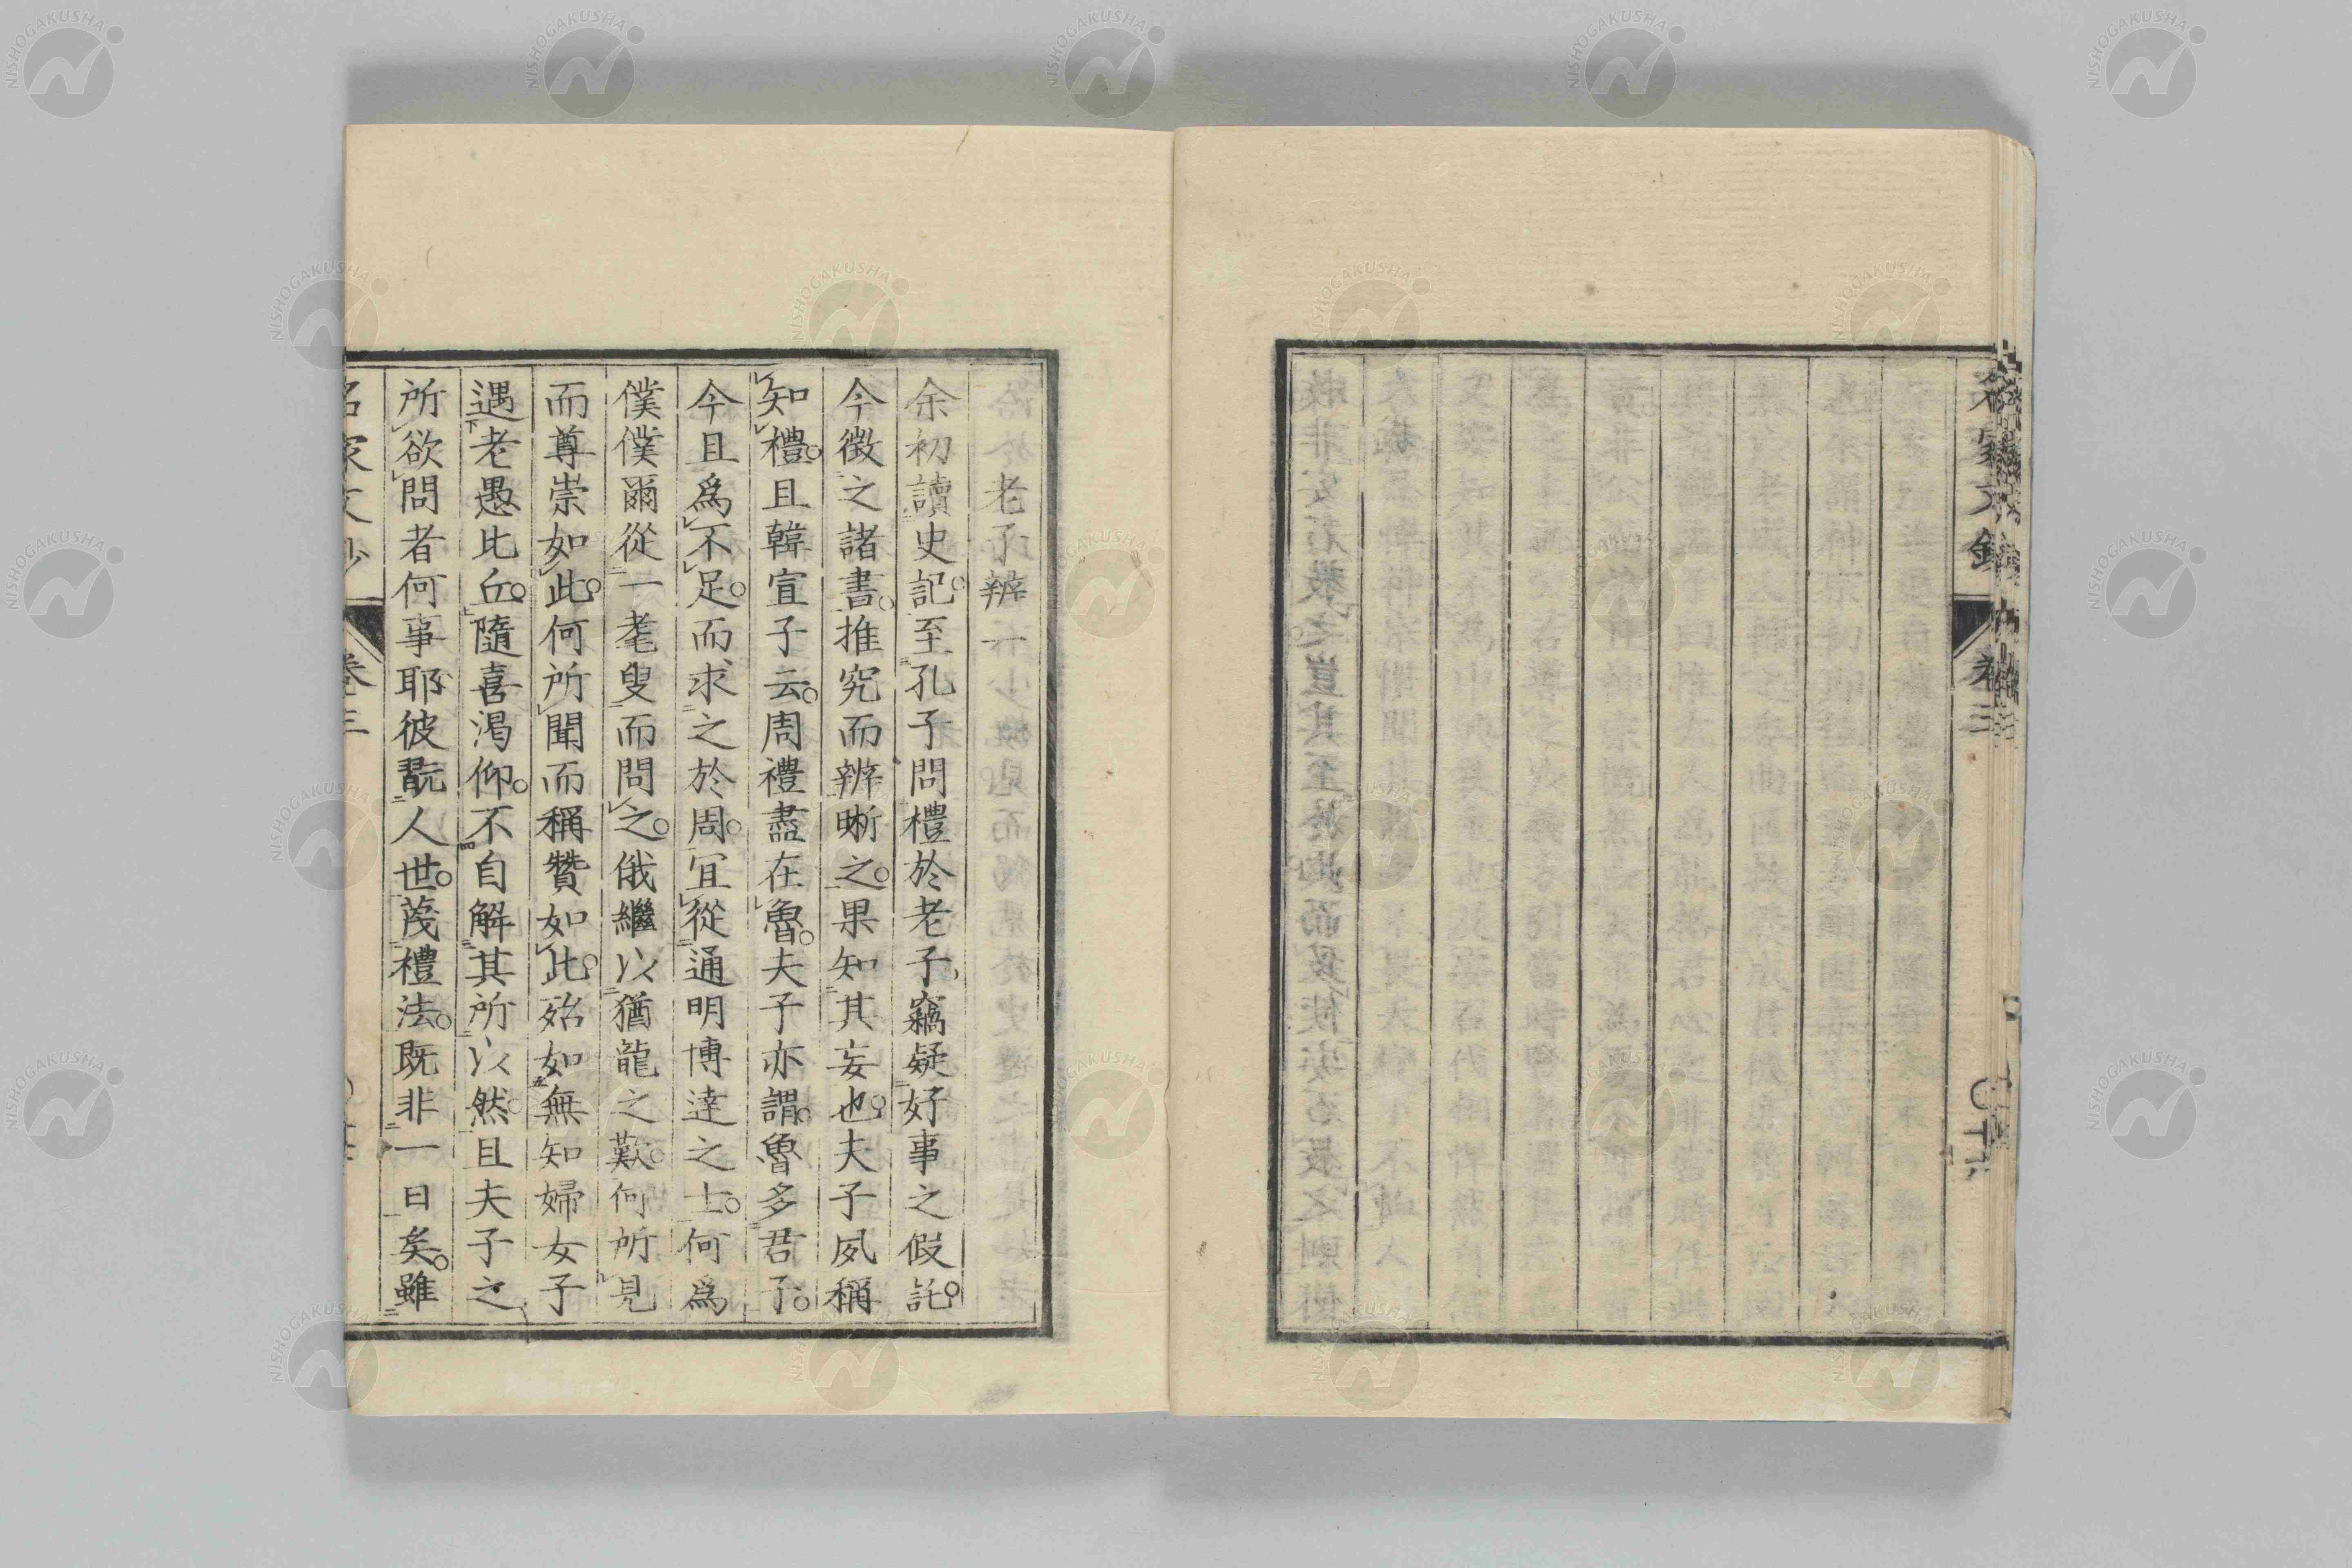 名家文鈔
卷三
老子辨一
余初讀史記。至孔子問禮於老子、竊疑好事之假託。
今徵之諸書。推究而辨晰之。果知其妄也。夫子夙稱
知禮。且韓宣子云。周禮盡在魯。夫子亦謂。魯多君子。
今且爲不足。而求之於周。宜從通明博達之士。何爲
僕僕爾從一耄叟而問之。俄繼以猶龍之歎。何所見
而尊崇如此。何所聞而稱贊如此。殆如無知婦女子
遇老愚比丘。隨喜渴仰。不自解其所以然。且夫子之
所欲問者何事耶彼翫人世。蔑禮法。既非一日矣。雖
名家文鈔
卷三
NISHOGAKUSHA